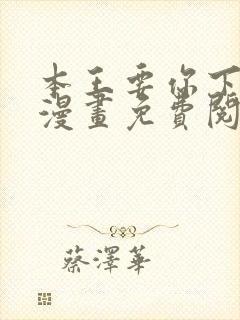 本王要你下
漫畫免費閱
蔡澤華